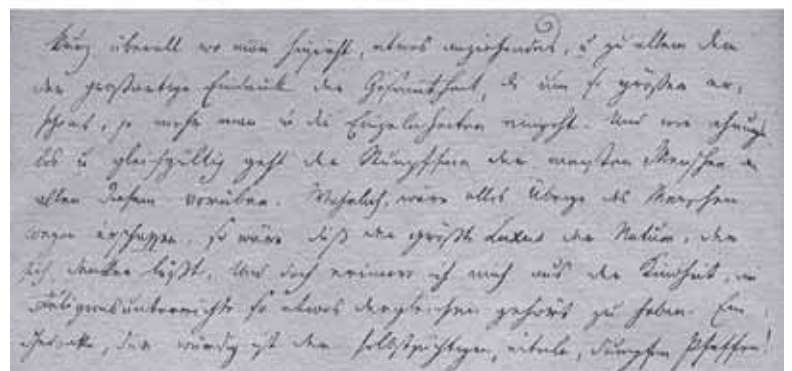 kurz überall wo man hinsieht, etwas anziehendes, u zu allem dem
der großartige Eindruck der Gesammtheit, der um so größer er-
scheint, je mehr man in die Einzelnheiten eingeht. Und wie ahnungs
los u gleichgültig geht der Stumpfsinn der meisten Menschen an
allen diesem vorüber. Wahrlich, wäre alles Übrige des Menschen
wegen erschaffen, so wäre dieß der größte Luxus der Natur, der
sich denken läßt. Und doch erinnere ich mich aus der Kindheit, im
Religionsunterrichte so etwas dergleichen gehört zu haben. Ein
Gedanke, der würdig ist der selbstsüchtigen, eitele, dumpfen Pfaffen!